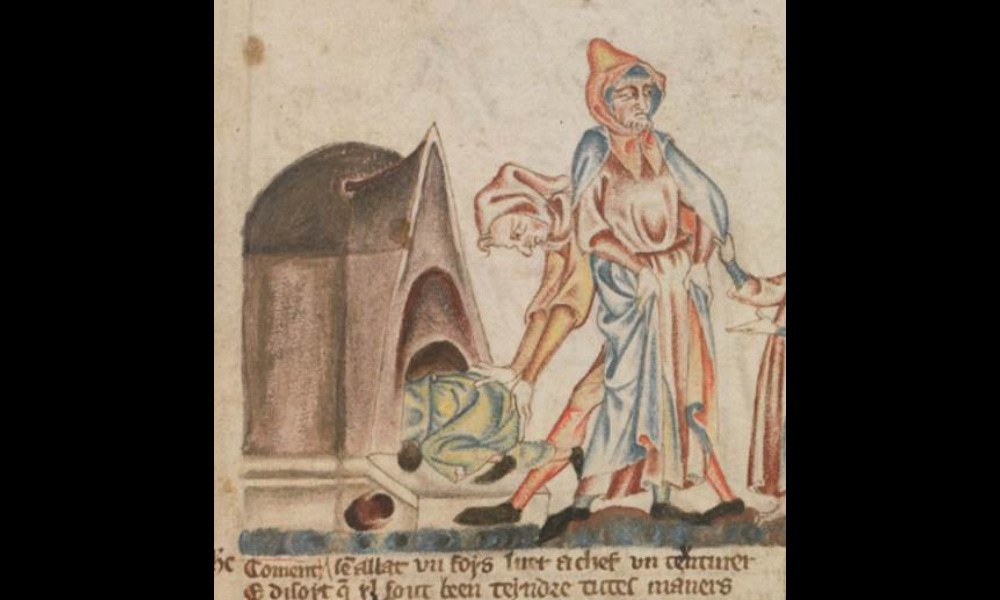 Coment se allat un foys iuer a chef un teinturer
E disoit q il sout been teindre tuctes maners